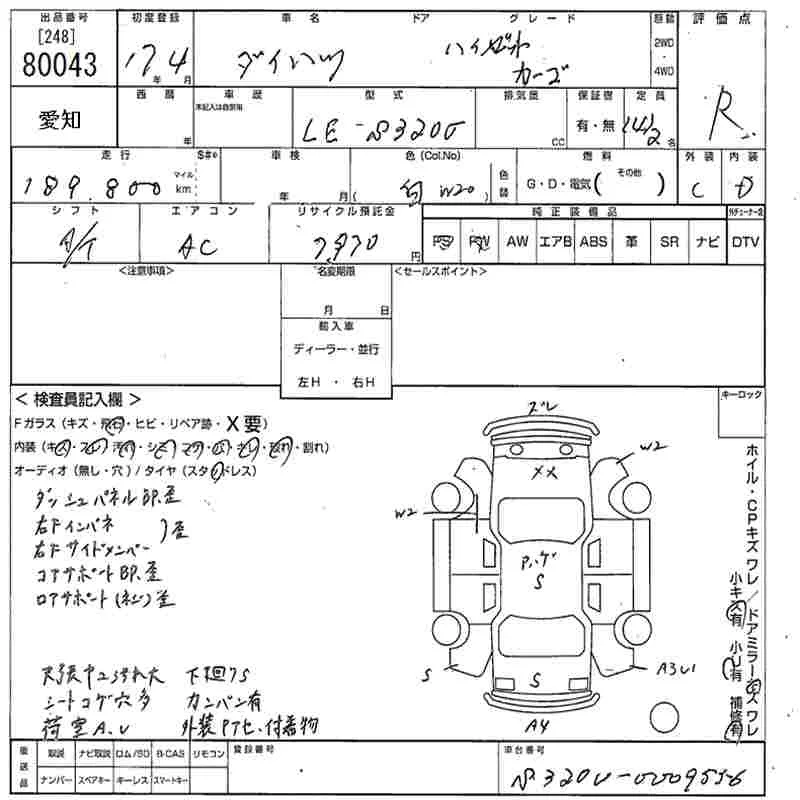 出品番号 初度登録 車名 ドア グレード 駆動 評価点
[248]
80043 17年 4月 ダイハツ ハイゼット カーゴ 2WD・4WD R
愛知 西暦 年 車歴 未記入は自家用 型式 LE-S320V 排気量 CC 保証書 有・無 定員 名
走行 S#• 車検 色 (Col.No) 色替 燃料 外装 内装
189.800 マイル km 年 月 ( 白 W20 ) G・D・電気 ( その他 ) C D
シフト エアコン リサイクル預託金 純正装備品
A/T AC 7,970 円 PS PW AW エアB ABS 革 SR ナビ DTV
<注意事項> 名変期限 <セールスポイント>
月 日
輸入車
ディーラー・並行
左H ・ 右H
< 検査員記入欄 > キーロック
Fガラス (キズ・飛石・ヒビ・リペア跡・X要)
オーディオ (無し・穴) / タイヤ (スタッドレス)
ダッシュパネルBP.歪
右Fインパネ
右Fサイドメンバー ) 歪
コアサポートBP.歪
ロアサポート(ネジ)歪
天張中2汚れ大 下廻りS
シートコゲ穴多 カンバン有
荷室A、U 外装PTセ、付着物
ズレ
XX
W2
W2
P,ハゲ
S
S
S
A3U1
A4
ホイル・CPキズ ワレ / ドアミラーキズ ワレ
小キズ有 小U有 補修有
後送品 取説 ナビ取説 ロム/SD B-CAS リモコン 登録番号 車台番号
ナンバー スペアキー キーレス スマートキー S320V-0009556